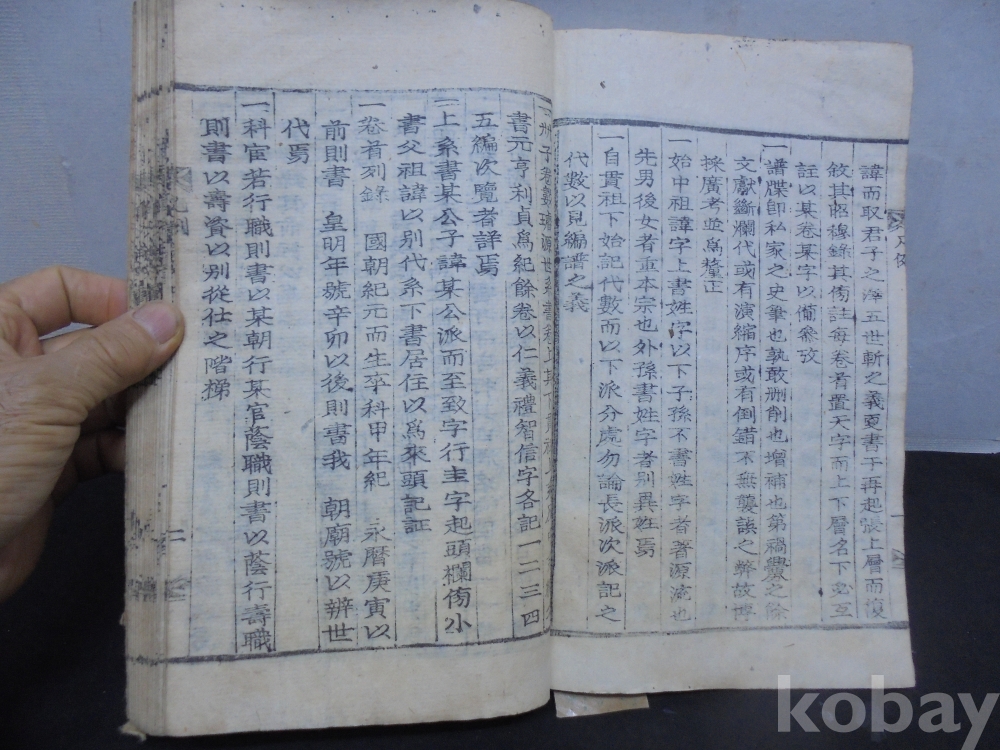 諱而取君子之澤五世斬之義更書于再起張上層而復
敘其昭穆錄其傍註每卷首置天字而上下層名下必互
註以某卷某字以備參攷
一譜牒卽私家之史筆也孰敢刪削也增補也第禍釁之餘
文獻斷爛代或有演縮序或有倒錯不無襲誤之弊故博
採廣考並爲釐正
一始中祖諱字上書姓字以下子孫不書姓字者著源濱也
先男後女者重本宗也外孫書姓字者別異姓焉
一自貫祖下始記代數而以下派分處勿論長派次派記之
代數以見編譜之義
一卅子卷數璿源世系書卷上其下
書元亨利貞爲紀餘卷以仁義禮智信字各記一二三四
五編次覽者詳焉
一上系書某公子諱某公派而至致字行圭字起頭欄傍小
書父祖諱以別代系下書居住以爲來頭記証
一卷首列錄 國朝紀元而生卒科甲年紀 永曆庚寅以
前則書 皇明年號辛卯以後則書我 朝廟號以辨世
代焉
一科宦若行職則書以某朝行某官蔭職則書以蔭行壽職
則書以壽資以別從仕之階梯
二
kobay